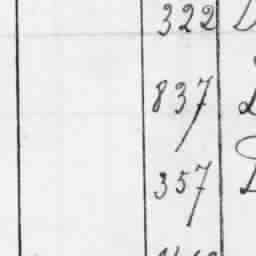 322
837
357